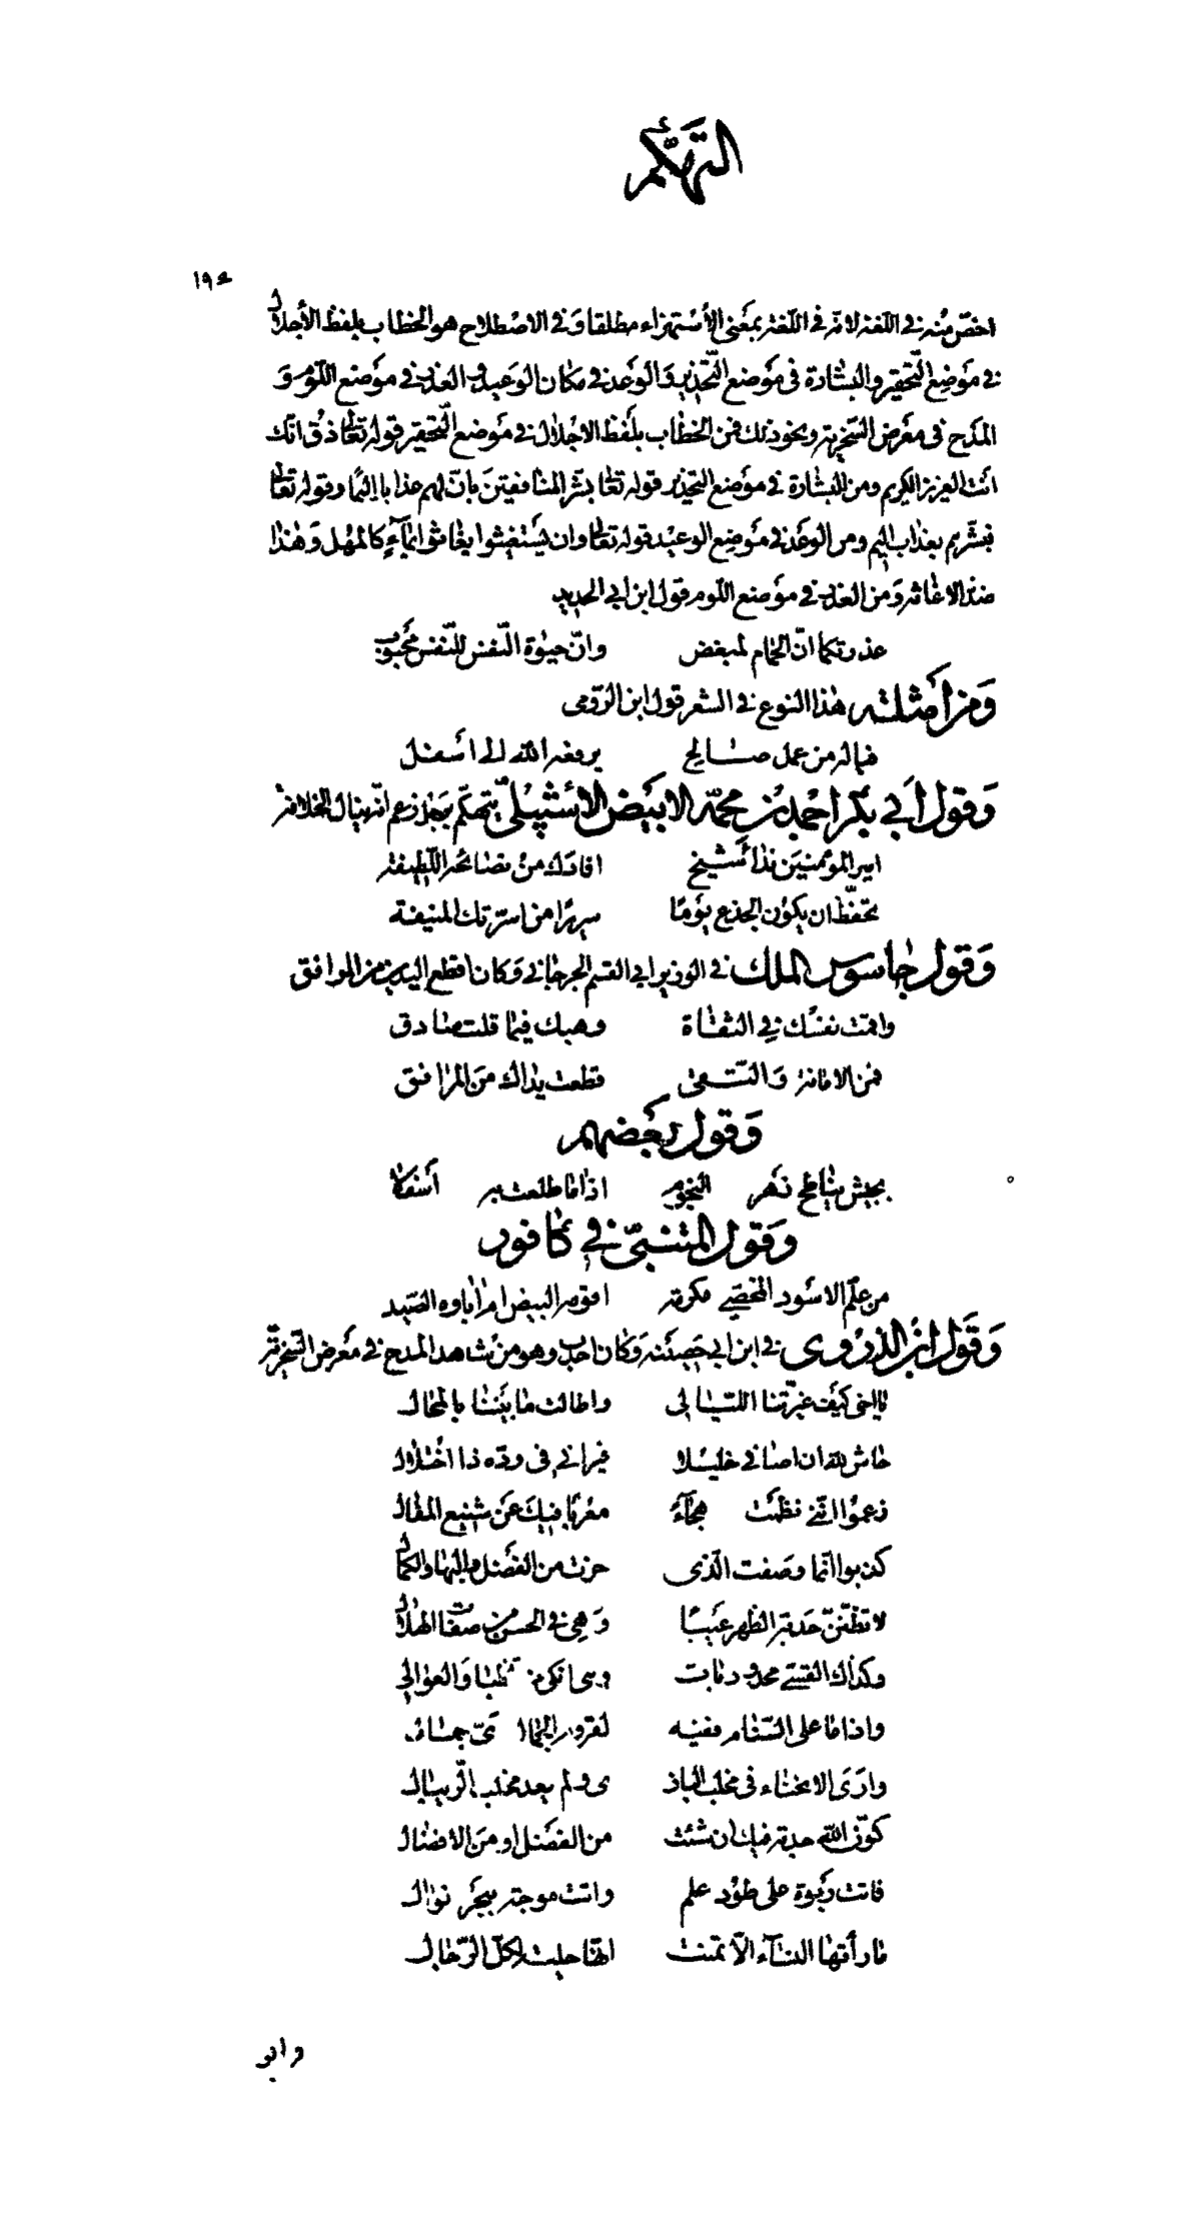 التهكّم
١٩٤
اخصّ منه في اللغة لانّه في اللّغة بمعنى الأستهزاء مطلقا وفي الاصطلاح هو الخطاب بلفظ الأجلال
في موضع التّحقير والبشارة في موضع التّحذير والوعد في مكان الوعيد والعذر في موضع اللّوم و
المدح في معرض السّخرية ونحو ذلك فمن الخطاب بلفظ الاجلال في موضع التّحقير قوله تعالى ذق انّك
انت العزيز الكريم ومن البشارة في موضع التحذير قوله تعالى بشّر المنافقين بانّ لهم عذابا اليمًا وقوله تعالى
فبشّرهم بعذاب اليم ومن الوعد في موضع الوعيد قوله تعالى وان يستغيثوا يغاثوا بمآءٍ كالمهل وهذا
ضدّ الاغاثة ومن العذر في موضع اللّوم قول ابن ابي الحديد
عذرتكما انّ الحمام لمبغض وانّ حيوة النّفس للنّفس محبوب
ومن أمثلته هذا النوع في الشعر قول ابن الرّومى
فياله من عمل صالح يرفعه الله الى اسفل
وقول أبي بكر احمد بن محمّد الابيض الأشبيليّ يتهكّم برجل زعم انّه ينال الخلافة
امير المؤمنين نداء شيخ افادك من نصائحه اللّطيفة
تحفّظ ان يكون الجذع يومًا سريرًا من اسرّتك المنيفة
وقول جاسوس الملك في الوزير ابي القسم الجرجاني وكان اقطع اليدين من المرافق
واقمت نفسك في الثقاة وهبك فيما قلت صادق
فمن الامانة والتّقى قطعت يداك من المرافق
وقول بعضهم
بجيش يناطح نهر النجوم اذا ما طلعت به اسفلا
وقول المتنبّي في كافور
من علّم الاسود المخصيّ مكرمة اقومه البيض ام آباوه الصّيد
وقول ابن الذروى في ابن ابي حصينة وكان احدب وهو من شاهد المدح في معرض السّخريّة
يا اخى كيف غيّرتنا اللّيالي واحالت ما بيننا بالمحال
حاش لله ان اصافي خليلا فيراني في ودّه ذا اختلال
زعموا انّني نظمت هجآءً معربًا فيك عن شنيع المقال
كذبوا انّما وصفت الّذى حزت من الفضل والبهاء والكمال
لا تظنّنّ حدبة الظهر عيبًا وهي في الحسن من صفات الهلال
وكذاك القسيّ محدودبات وهي انكى من الظبا والعوالي
واذا ما على السّنام ففيه لقروم الجمال اىّ جمال
وارى الانحناء في مخلب الباز ى ولم يعد مخلب الرّيبال
كوّن الله حدبة فيك ان شئت من الفضل او من الافضال
فاتت ربوة على طود علم واتت موجة ببحر نوال
ما رأتها النسآء الّا تمنت انّها حلية لكلّ الرّجال
وابو